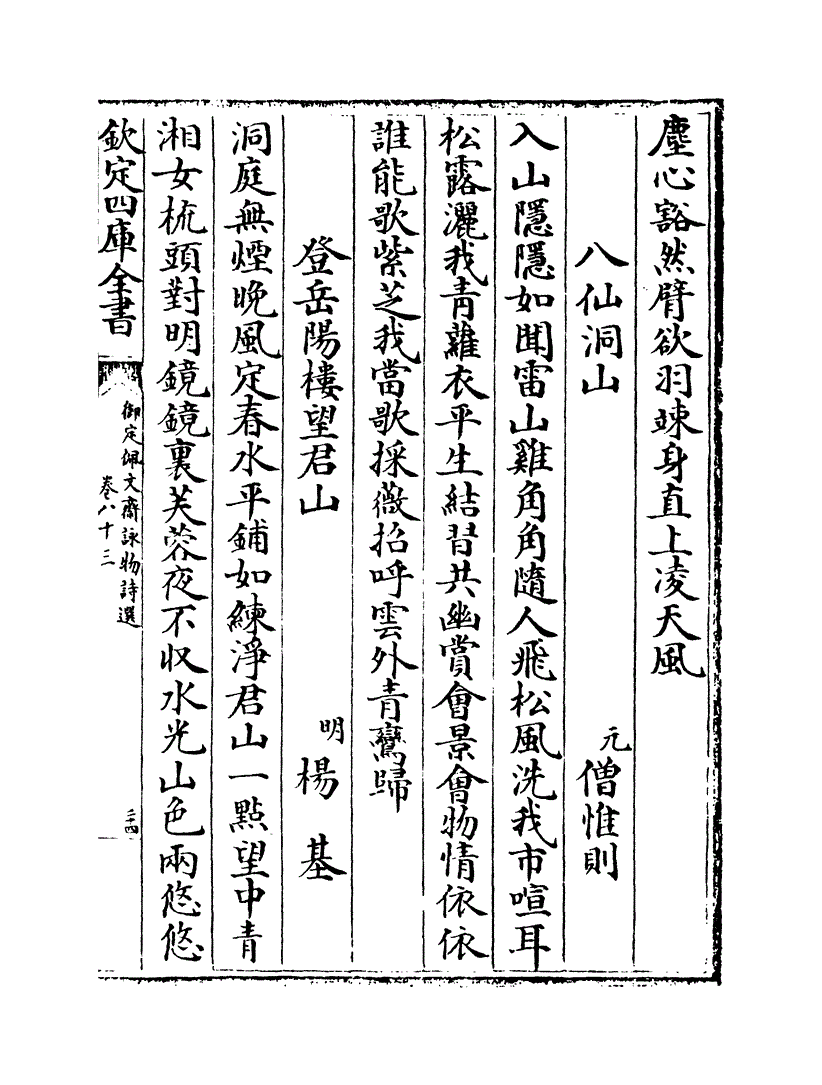 塵心豁然臂欲羽竦身直上凌天風
八仙洞山
元 僧惟則
入山隱隱如聞雷山雞角角隨人飛松風洗我市喧耳
松露灑我青蘿衣平生結習共幽賞會景會物情依依
誰能歌紫芝我當歌採薇招呼雲外青鸞歸
登岳陽樓望君山
明 楊基
洞庭無煙晚風定春水平鋪如練淨君山一點望中青
湘女梳頭對明鏡鏡裏芙蓉夜不收水光山色兩悠悠
欽定四庫全書
御定佩文齋詠物詩選
卷八十三
二十四